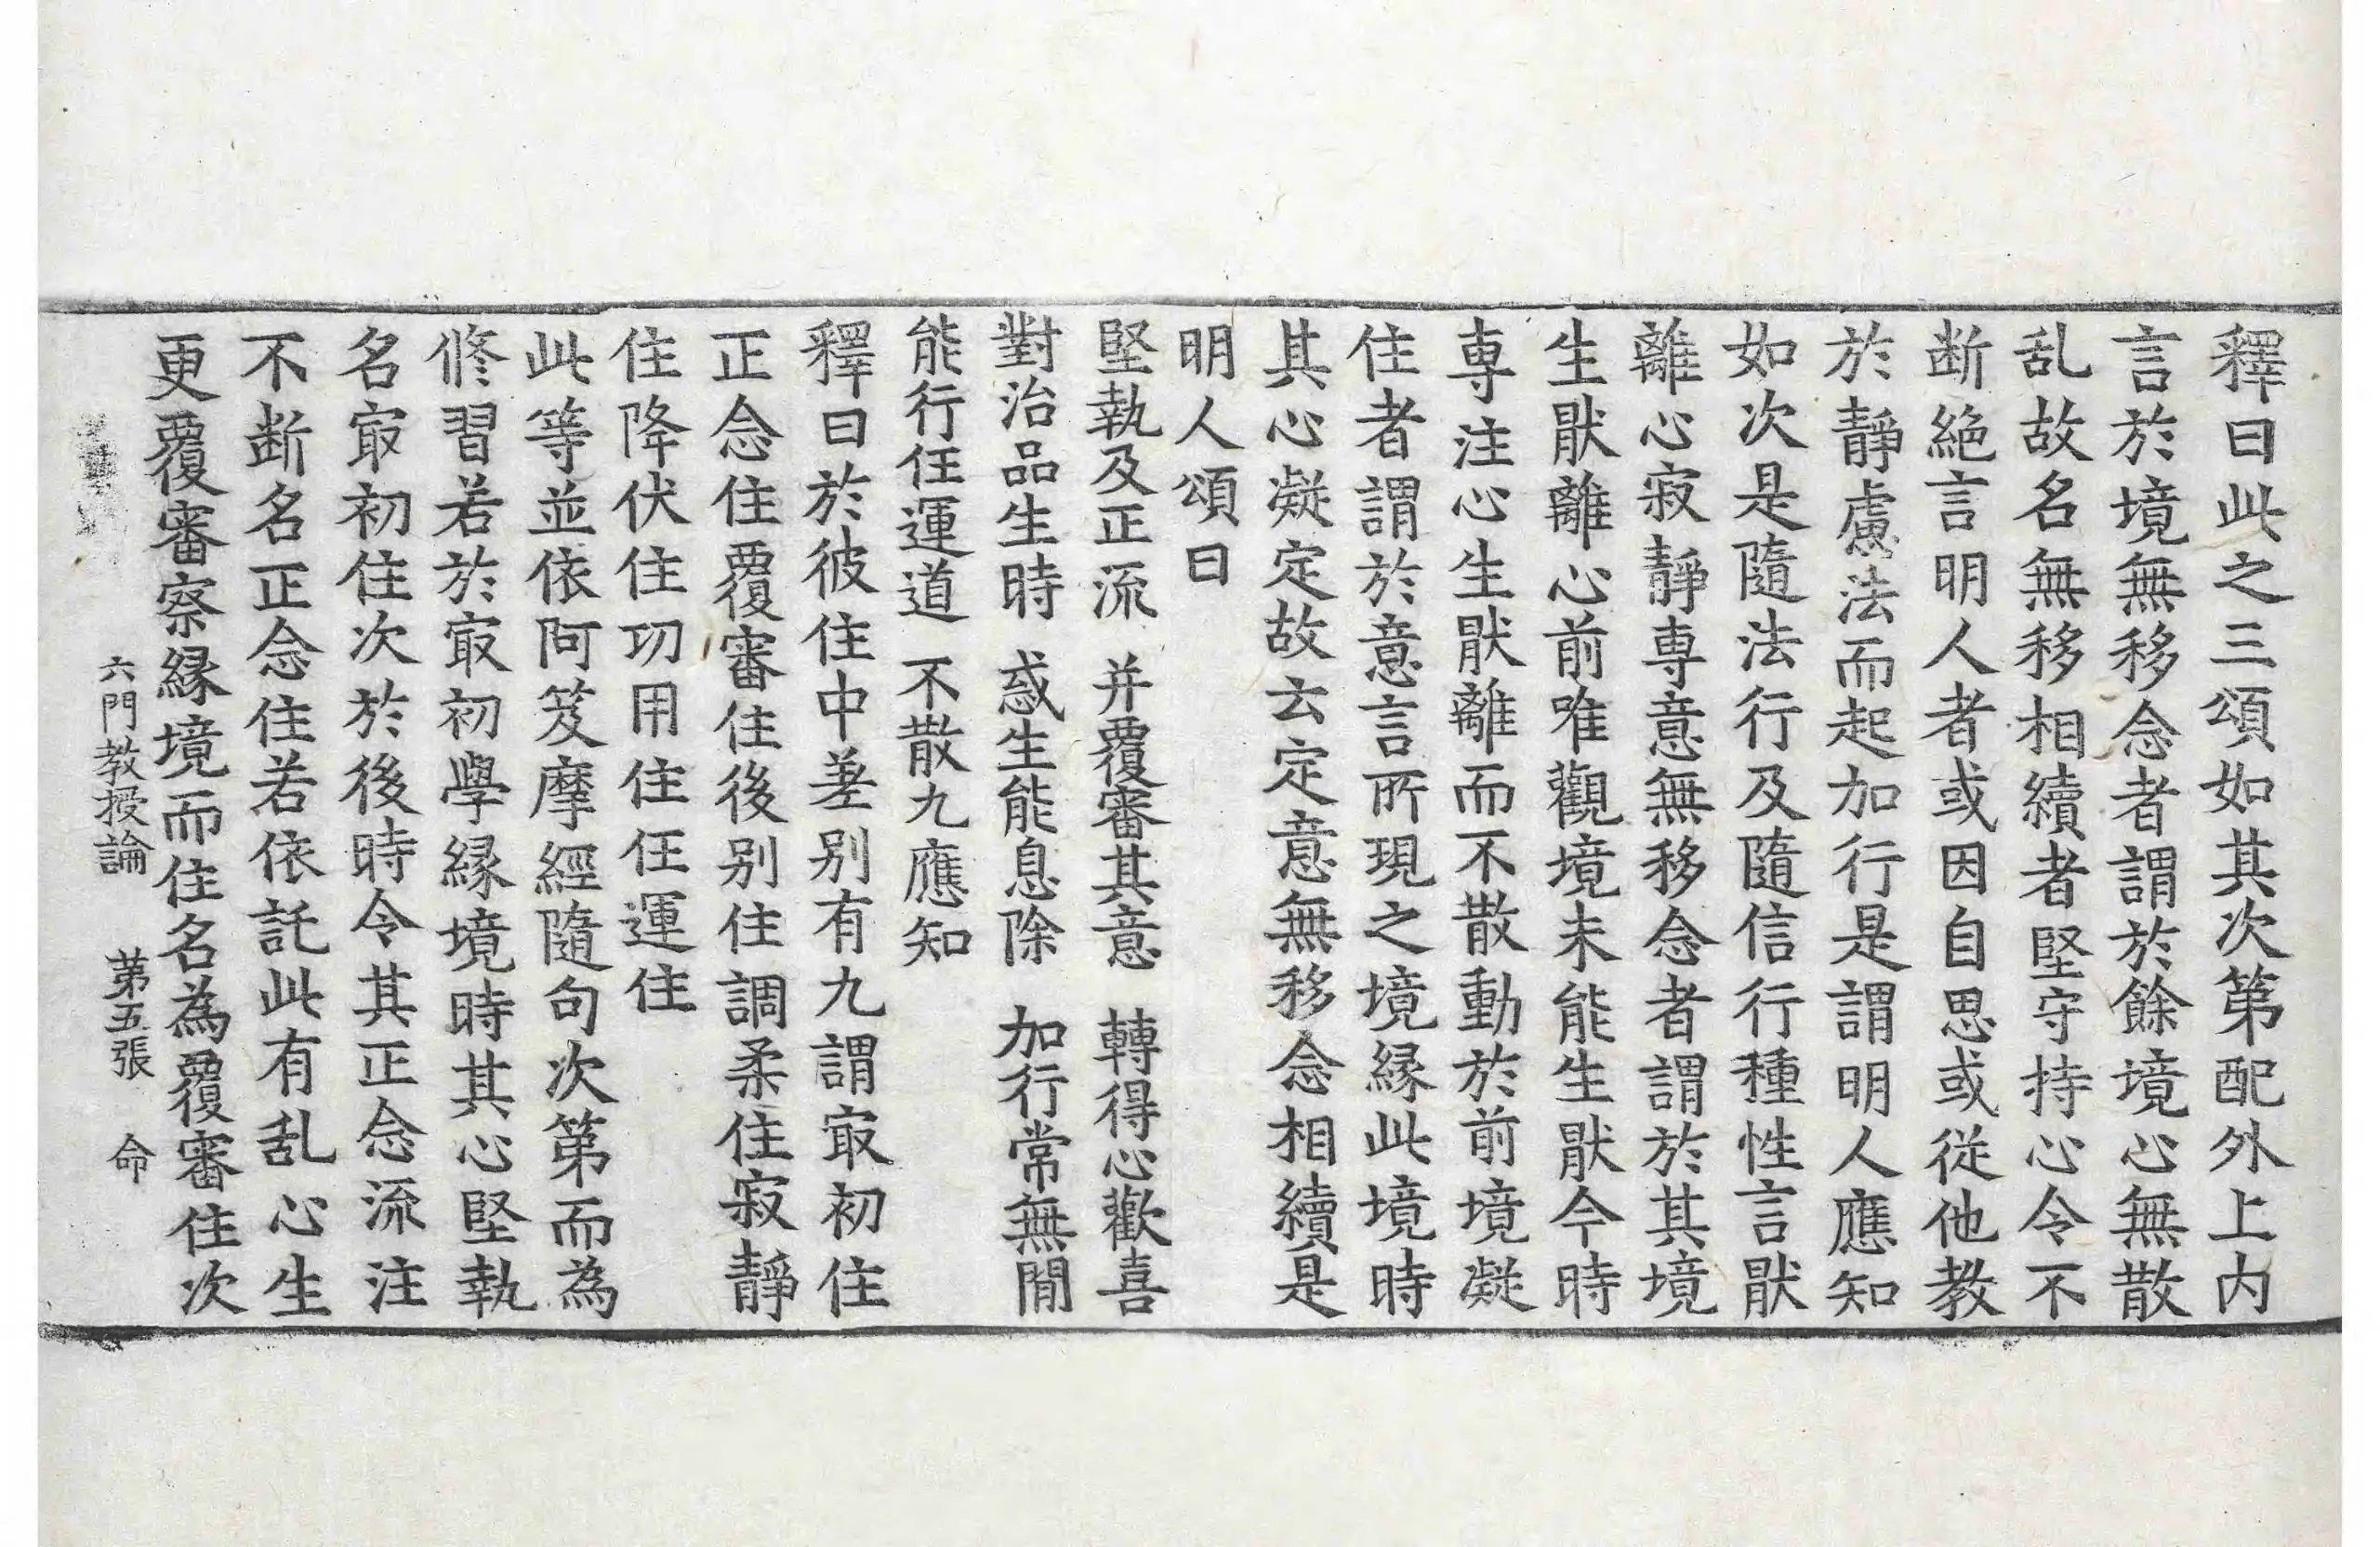 釋曰此之三頌如其次第配外上内
言於境無移念者謂於餘境心無散
乱故名無移相續者堅守持心令不
断絕言明人者或因自思或從他教
於靜慮法而起加行是謂明人應知
如次是隨法行及隨信行種性言猒
離心寂靜専意無移念者謂於其境
生猒離心前唯觀境未能生猒今時
専注心生猒離而不散動於前境凝
住者謂於意言所現之境縁此境時
其心凝定故云定意無移念相續是
明人頌曰
堅執及正流　并覆審其意　轉得心歡喜
對治品生時　惑生能息除　加行常無間
能行任運道　不散九應知
釋曰於彼住中差別有九謂㝡初住
正念住覆審住後別住調柔住寂靜
住降伏住功用住任運住
此等並依阿笈摩經隨句次第而為
修習若於㝡初學縁境時其心堅執
名㝡初住次於後時令其正念流注
不断名正念住若依託此有乱心生
更覆審察縁境而住名為覆審住次
六門教授論　第五張　命